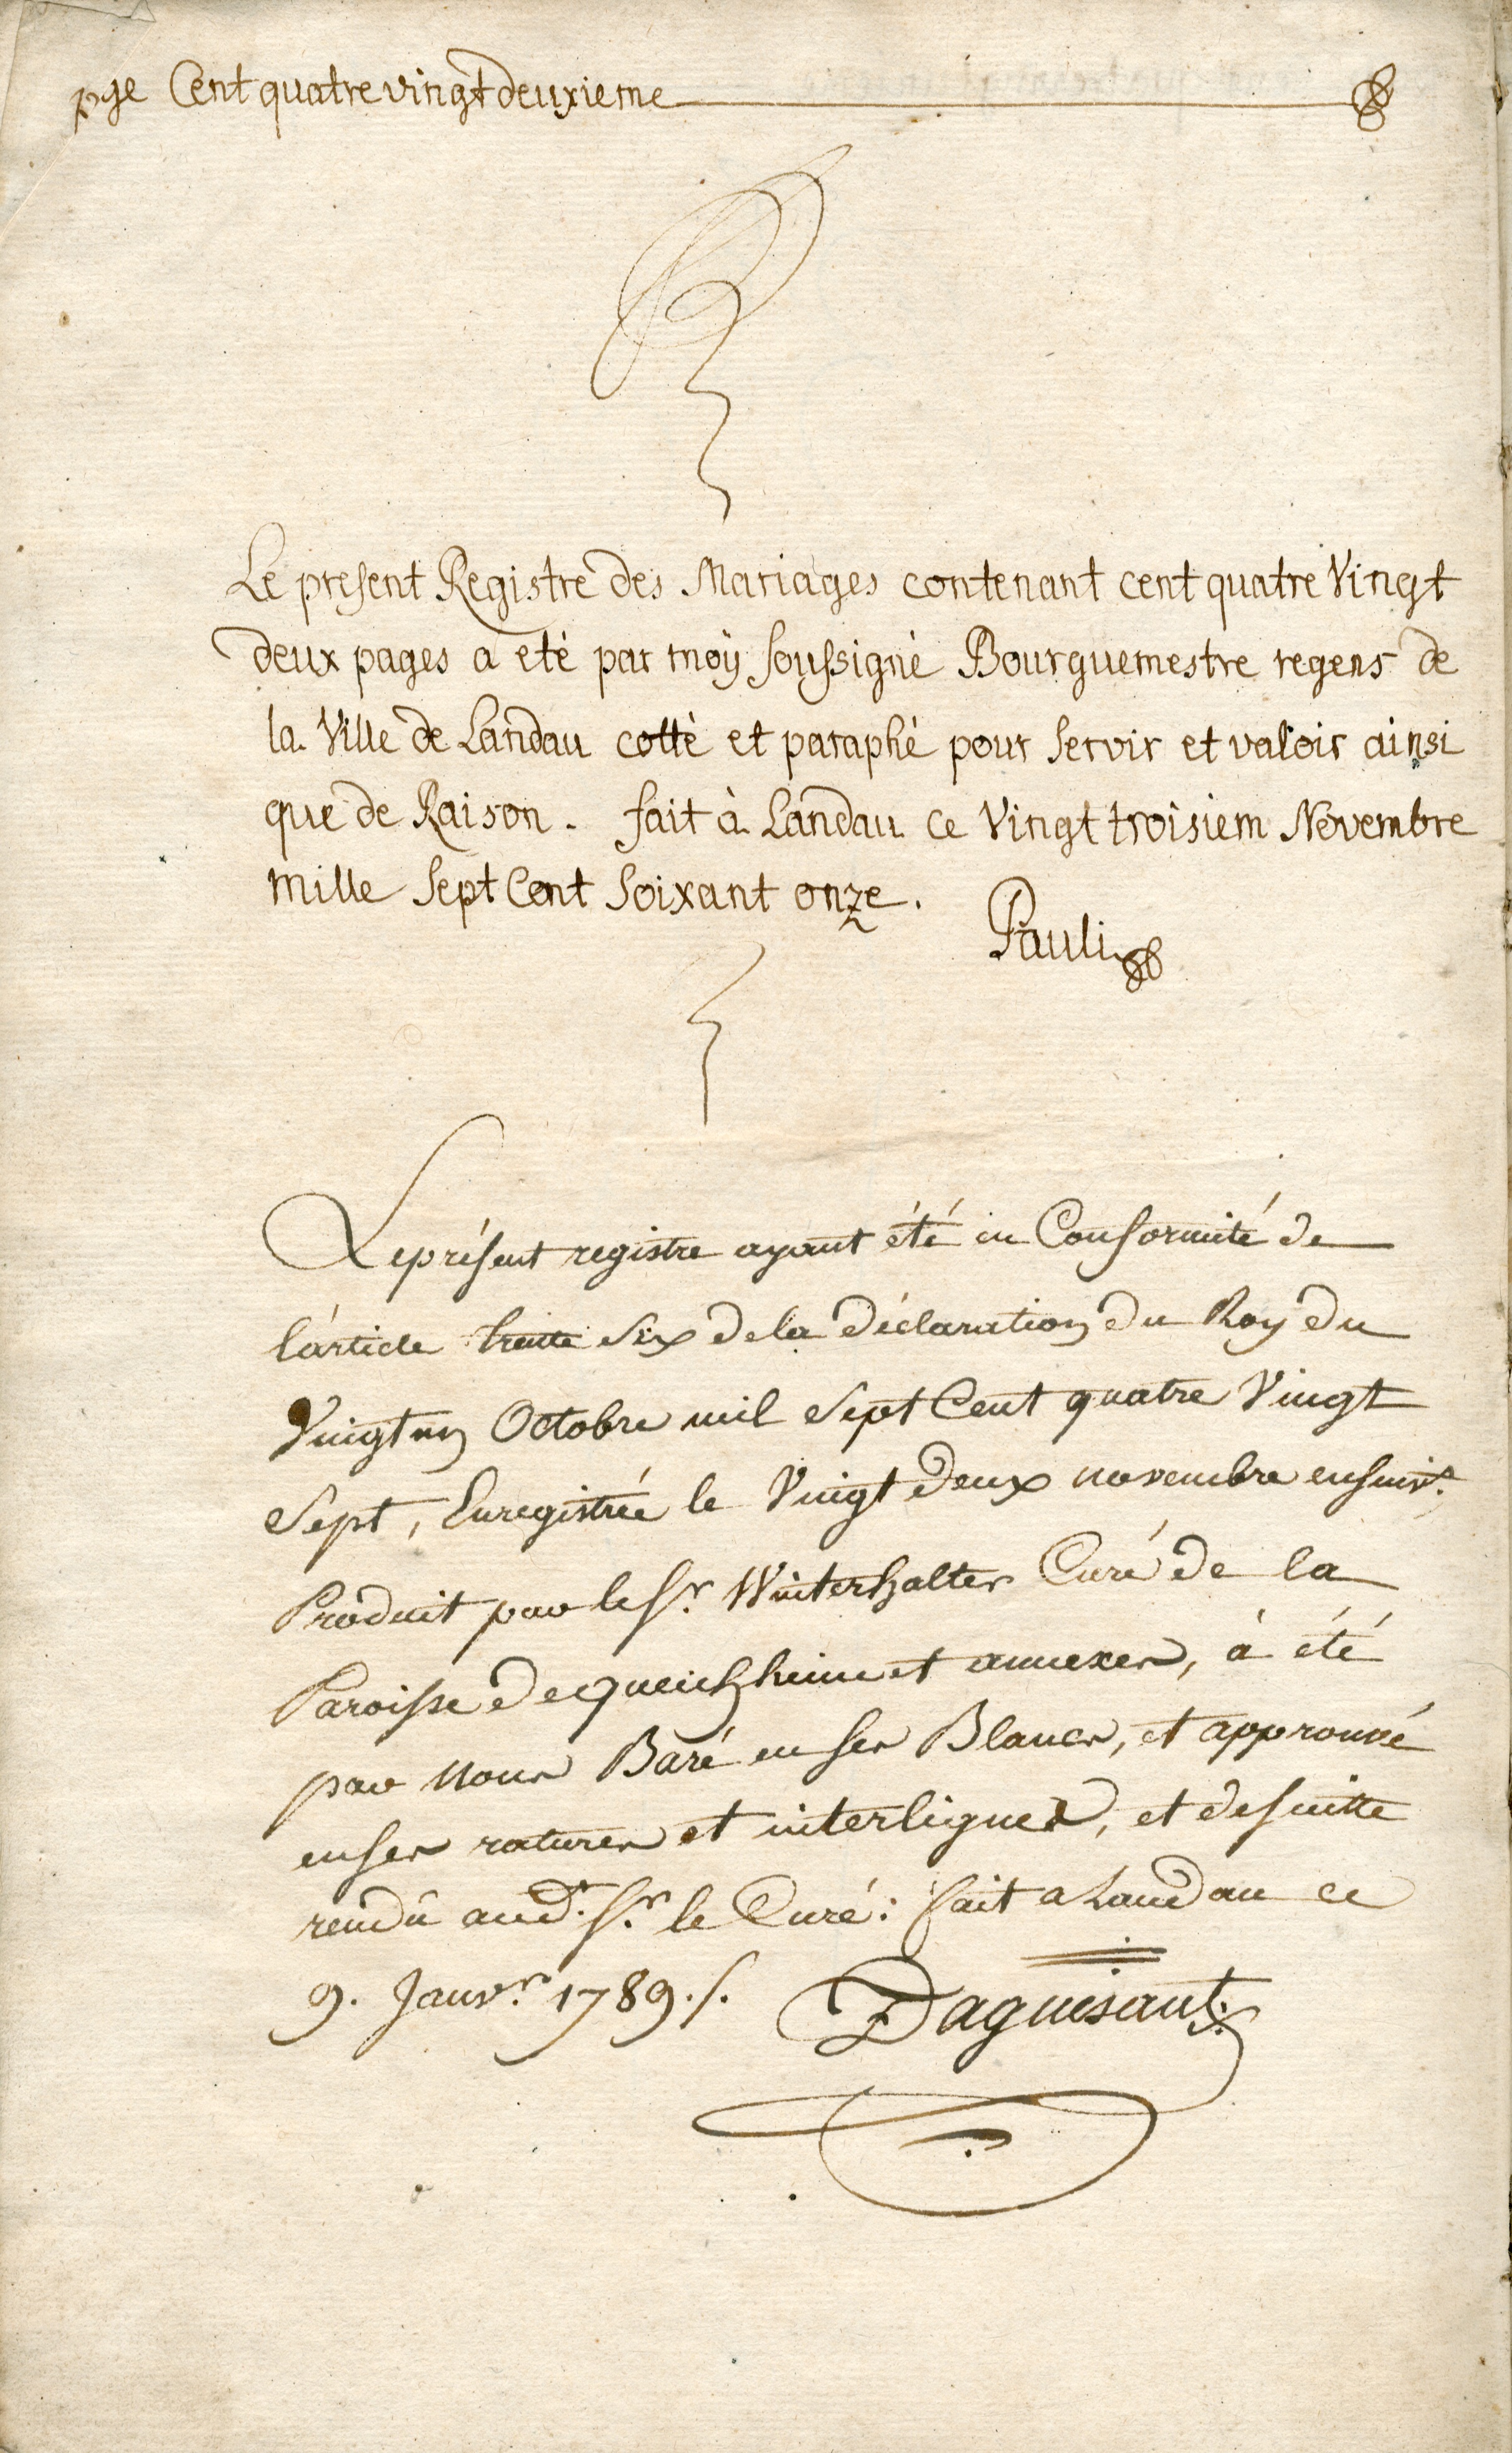 pge Cent quatre vingt deuxieme
Le present Registre des Mariages contenant cent quatre Vingt
deux pages a eté par moÿ soussigné Bourguemestre regens de
la Ville de Landau cotté et paraphé pour servir et valoir ainsi
que de Raison. fait à Landau ce Vingt troisiem Novembre
mille sept Cent soixant onze.
Pauli
Le présent registre ayant été en Conformité de
l'article trente Six de la déclaration du Roy du
Vingt un Octobre mil Sept Cent quatre Vingt
Sept, Enregistrée le Vingt deux novembre ensuivt.
Produit par le Sr. Winterhalter Curé de la
Paroisse de queichheim et annexes, à été
par Nous Baré en ses Blancs, et approuvé
en ses ratures et interlignes, et de suitte
rendû aud. Sr. le Curé: fait a Landau ce
9. Janvr. 1789./.
Daguesant